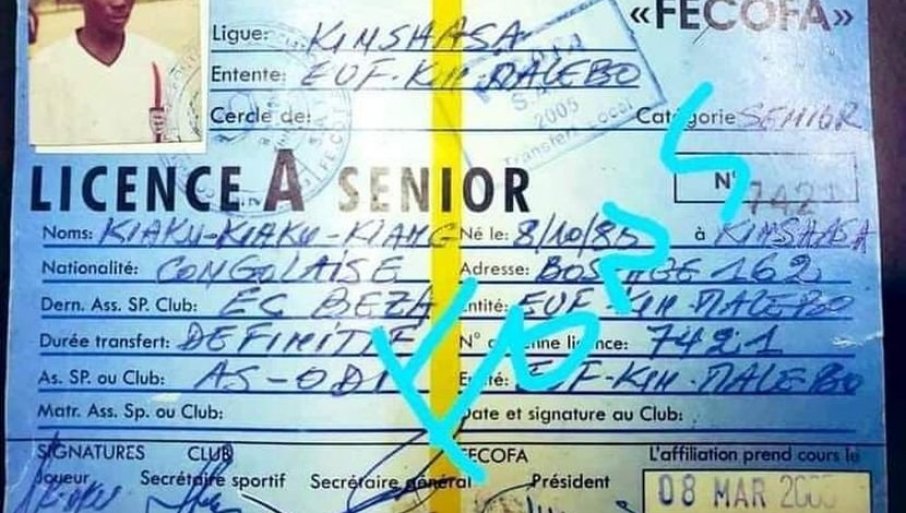 «FECOFA»
Ligue: KINSHASA
Entente: EUF-KIN-MALEBO
Cercle de:
Catégorie SENIOR
2005
Transfert Local
LICENCE A SENIOR
N° 7421
Noms: KIAKU-KIAKU-KIANG Né le: 8/10/85 à KINSHASA
Nationalité: CONGOLAISE Adresse: 162
Dern. Ass. SP. Club: EC BEZA Entité: EUF-KIN-MALEBO
Durée transfert: DEFINITIF N° licence: 7421
As. SP. ou Club: AS-ODI EUF-KIN-MALEBO
Matr. Ass. Sp. ou Club: Date et signature au Club:
SIGNATURES CLUB FECOFA L'affiliation prend cours le
Joueur Secrétaire sportif Secrétaire général Président
08 MAR